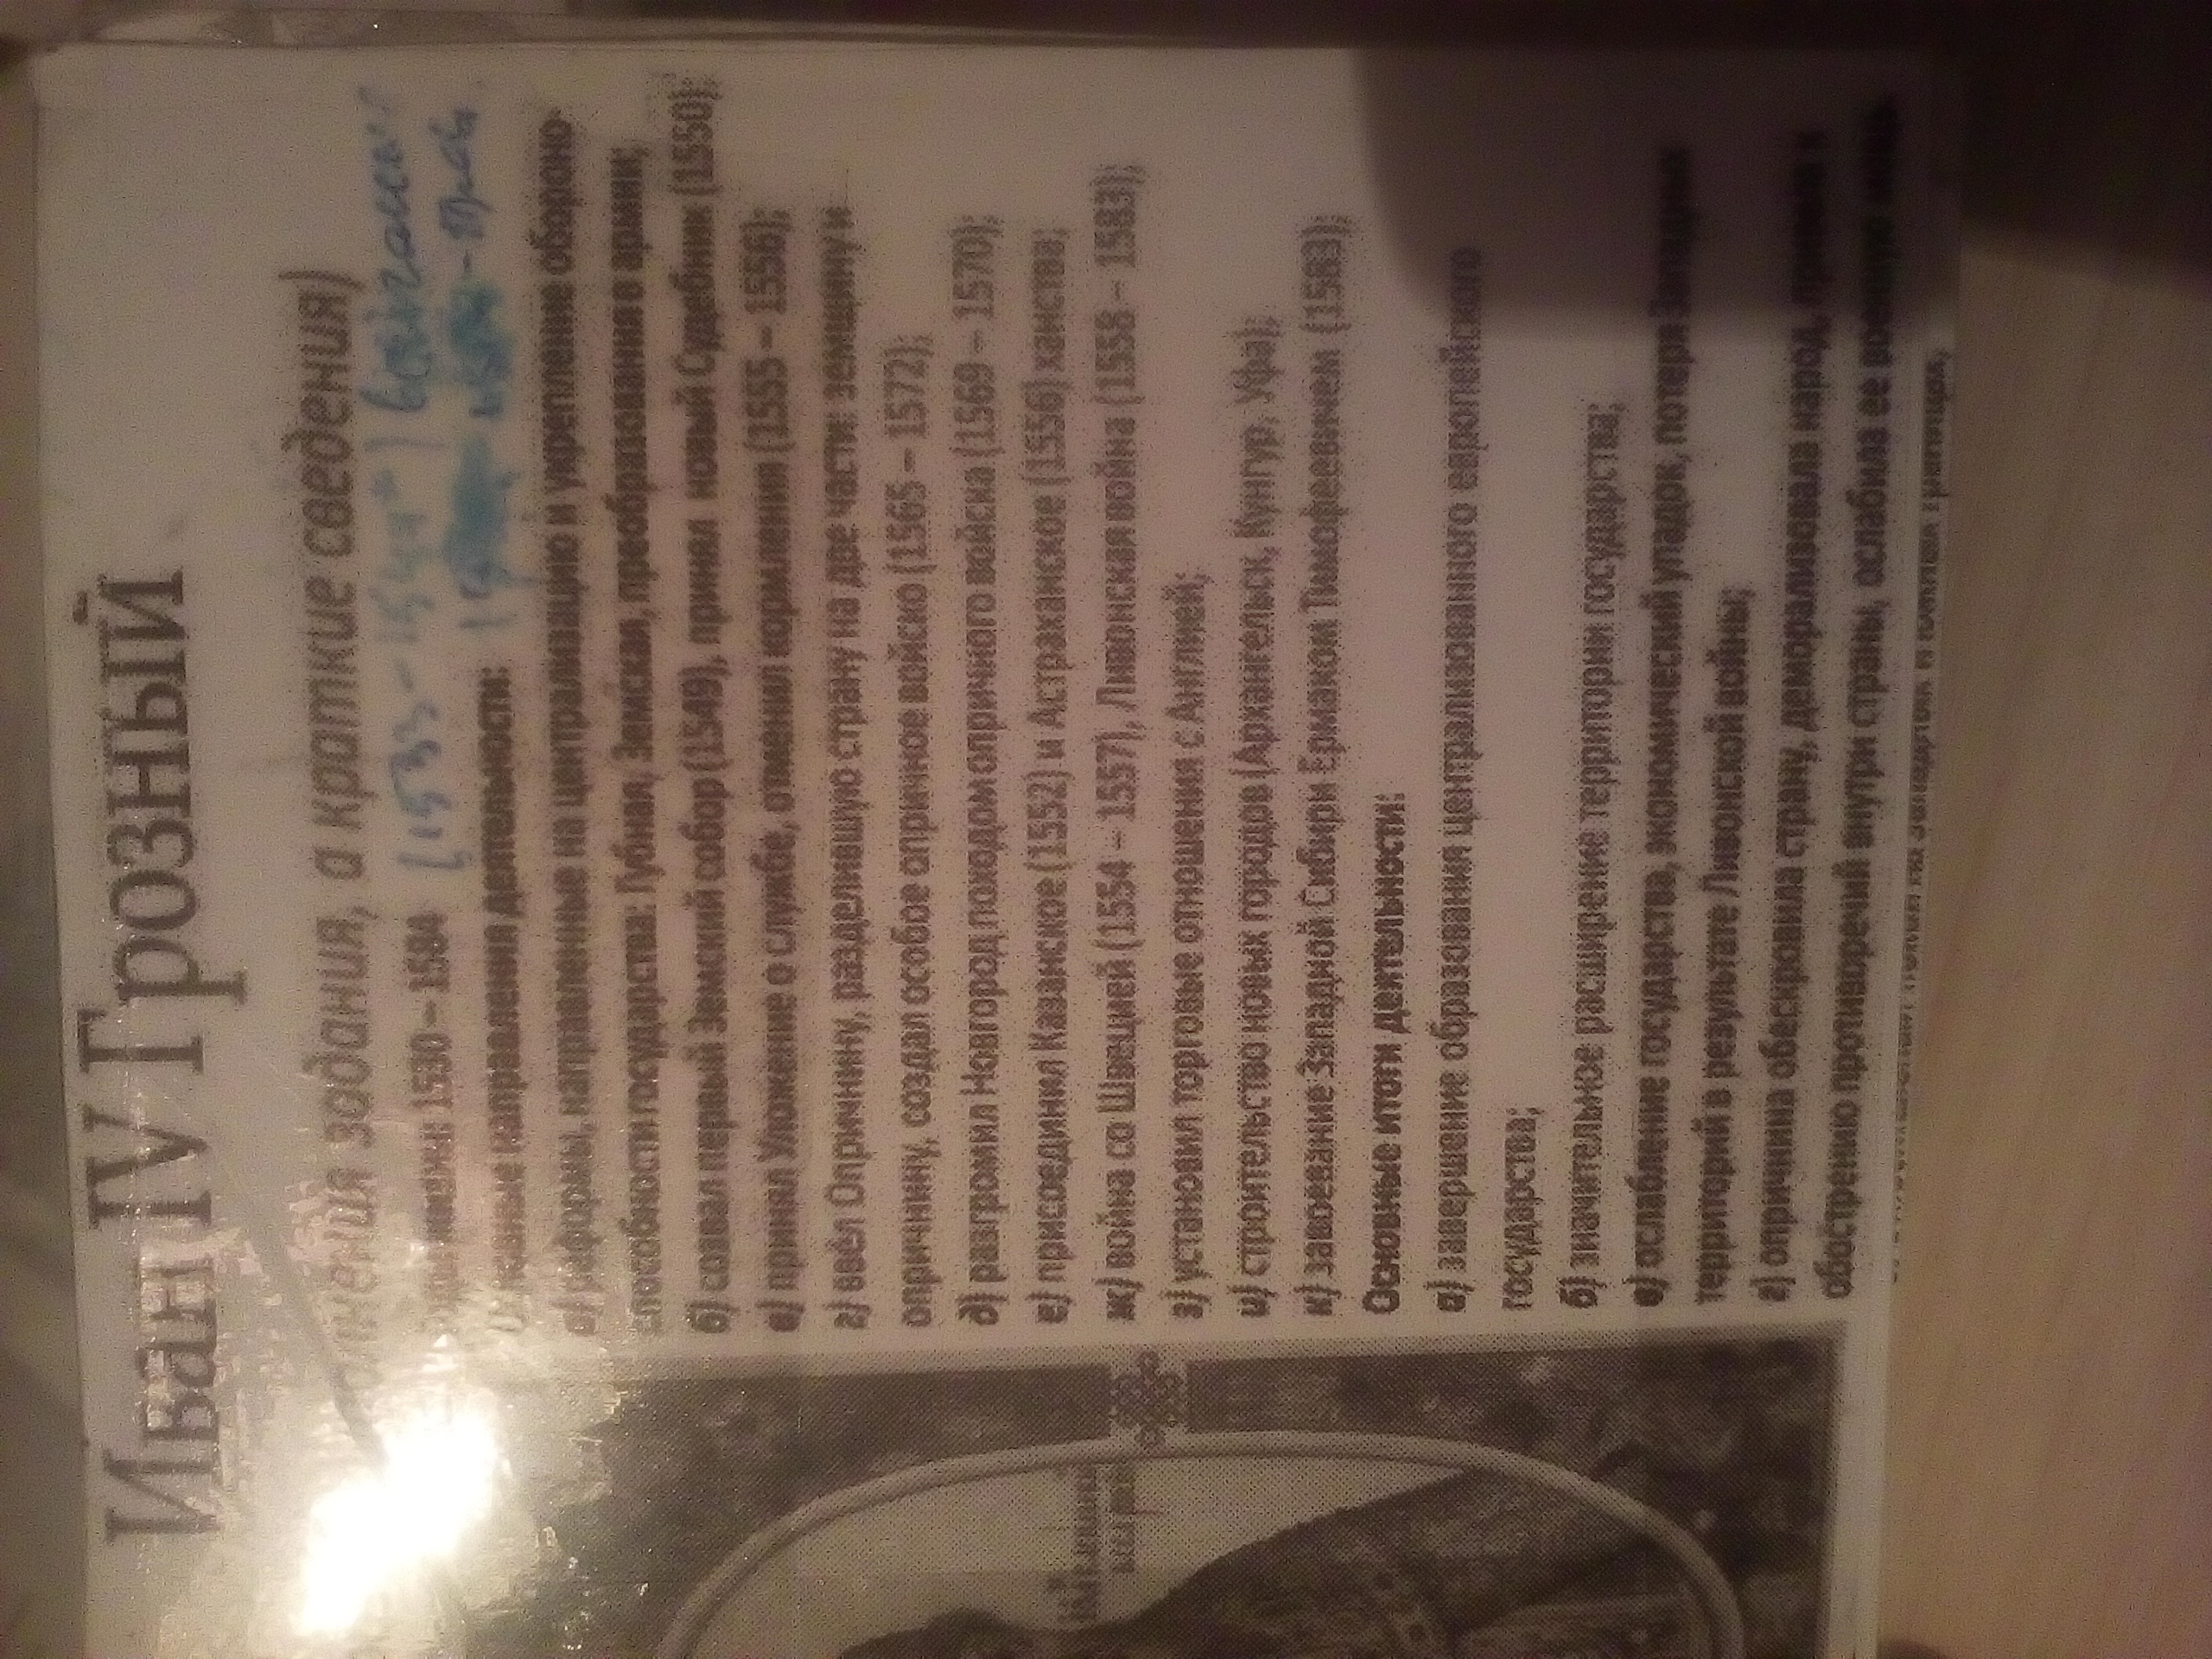 Иван IV Грозный
задания, а краткие сведения)
1530 – 1584 (1533 – 1547
направления деятельности:
а) реформы, направленные на централизацию и укрепление обороно-
способности государства: Губная, Земская, преобразования в армии;
б) созвал первый Земский собор (1549), принял новый Судебник (1550);
в) принял Уложение о службе, отменил кормления (1555 – 1556);
г) ввёл Опричнину, разделившую страну на две части: земщину и
опричнину, создал особое опричное войско (1565 – 1572);
д) разгромил Новгород походом опричного войска (1569 – 1570);
е) присоединил Казанское (1552) и Астраханское (1556) ханства;
ж) война со Швецией (1554 – 1557), Ливонская война (1558 – 1583);
з) установил торговые отношения с Англией;
и) строительство новых городов (Архангельск, Кунгур, Уфа);
к) завоевание Западной Сибири Ермаком Тимофеевичем (1583)
Основные итоги деятельности:
а) завершение образования централизованного европейского
государства;
б) значительное расширение территории государства;
в) ослабление государства, экономический упадок, потеря
территорий в результате Ливонской войны;
г) опричнина обескровила страну, деморализовала народ, привела к
обострению противоречий внутри страны, ослабила ее военную